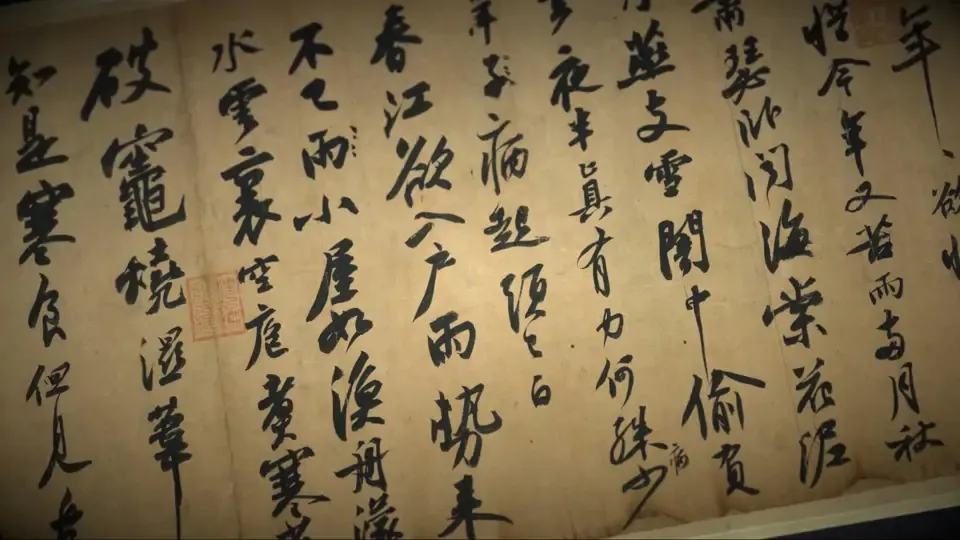 年欲惜
惜今年又苦雨兩月秋
蕭瑟臥聞海棠花泥
燕支雪闇中偷負
去夜半真有力何殊病少
年子病起頭已白
春江欲入戶雨勢來
不已雨小屋如漁舟濛
水雲裏空庖煮寒
破竈燒濕葦
知是寒食但見烏